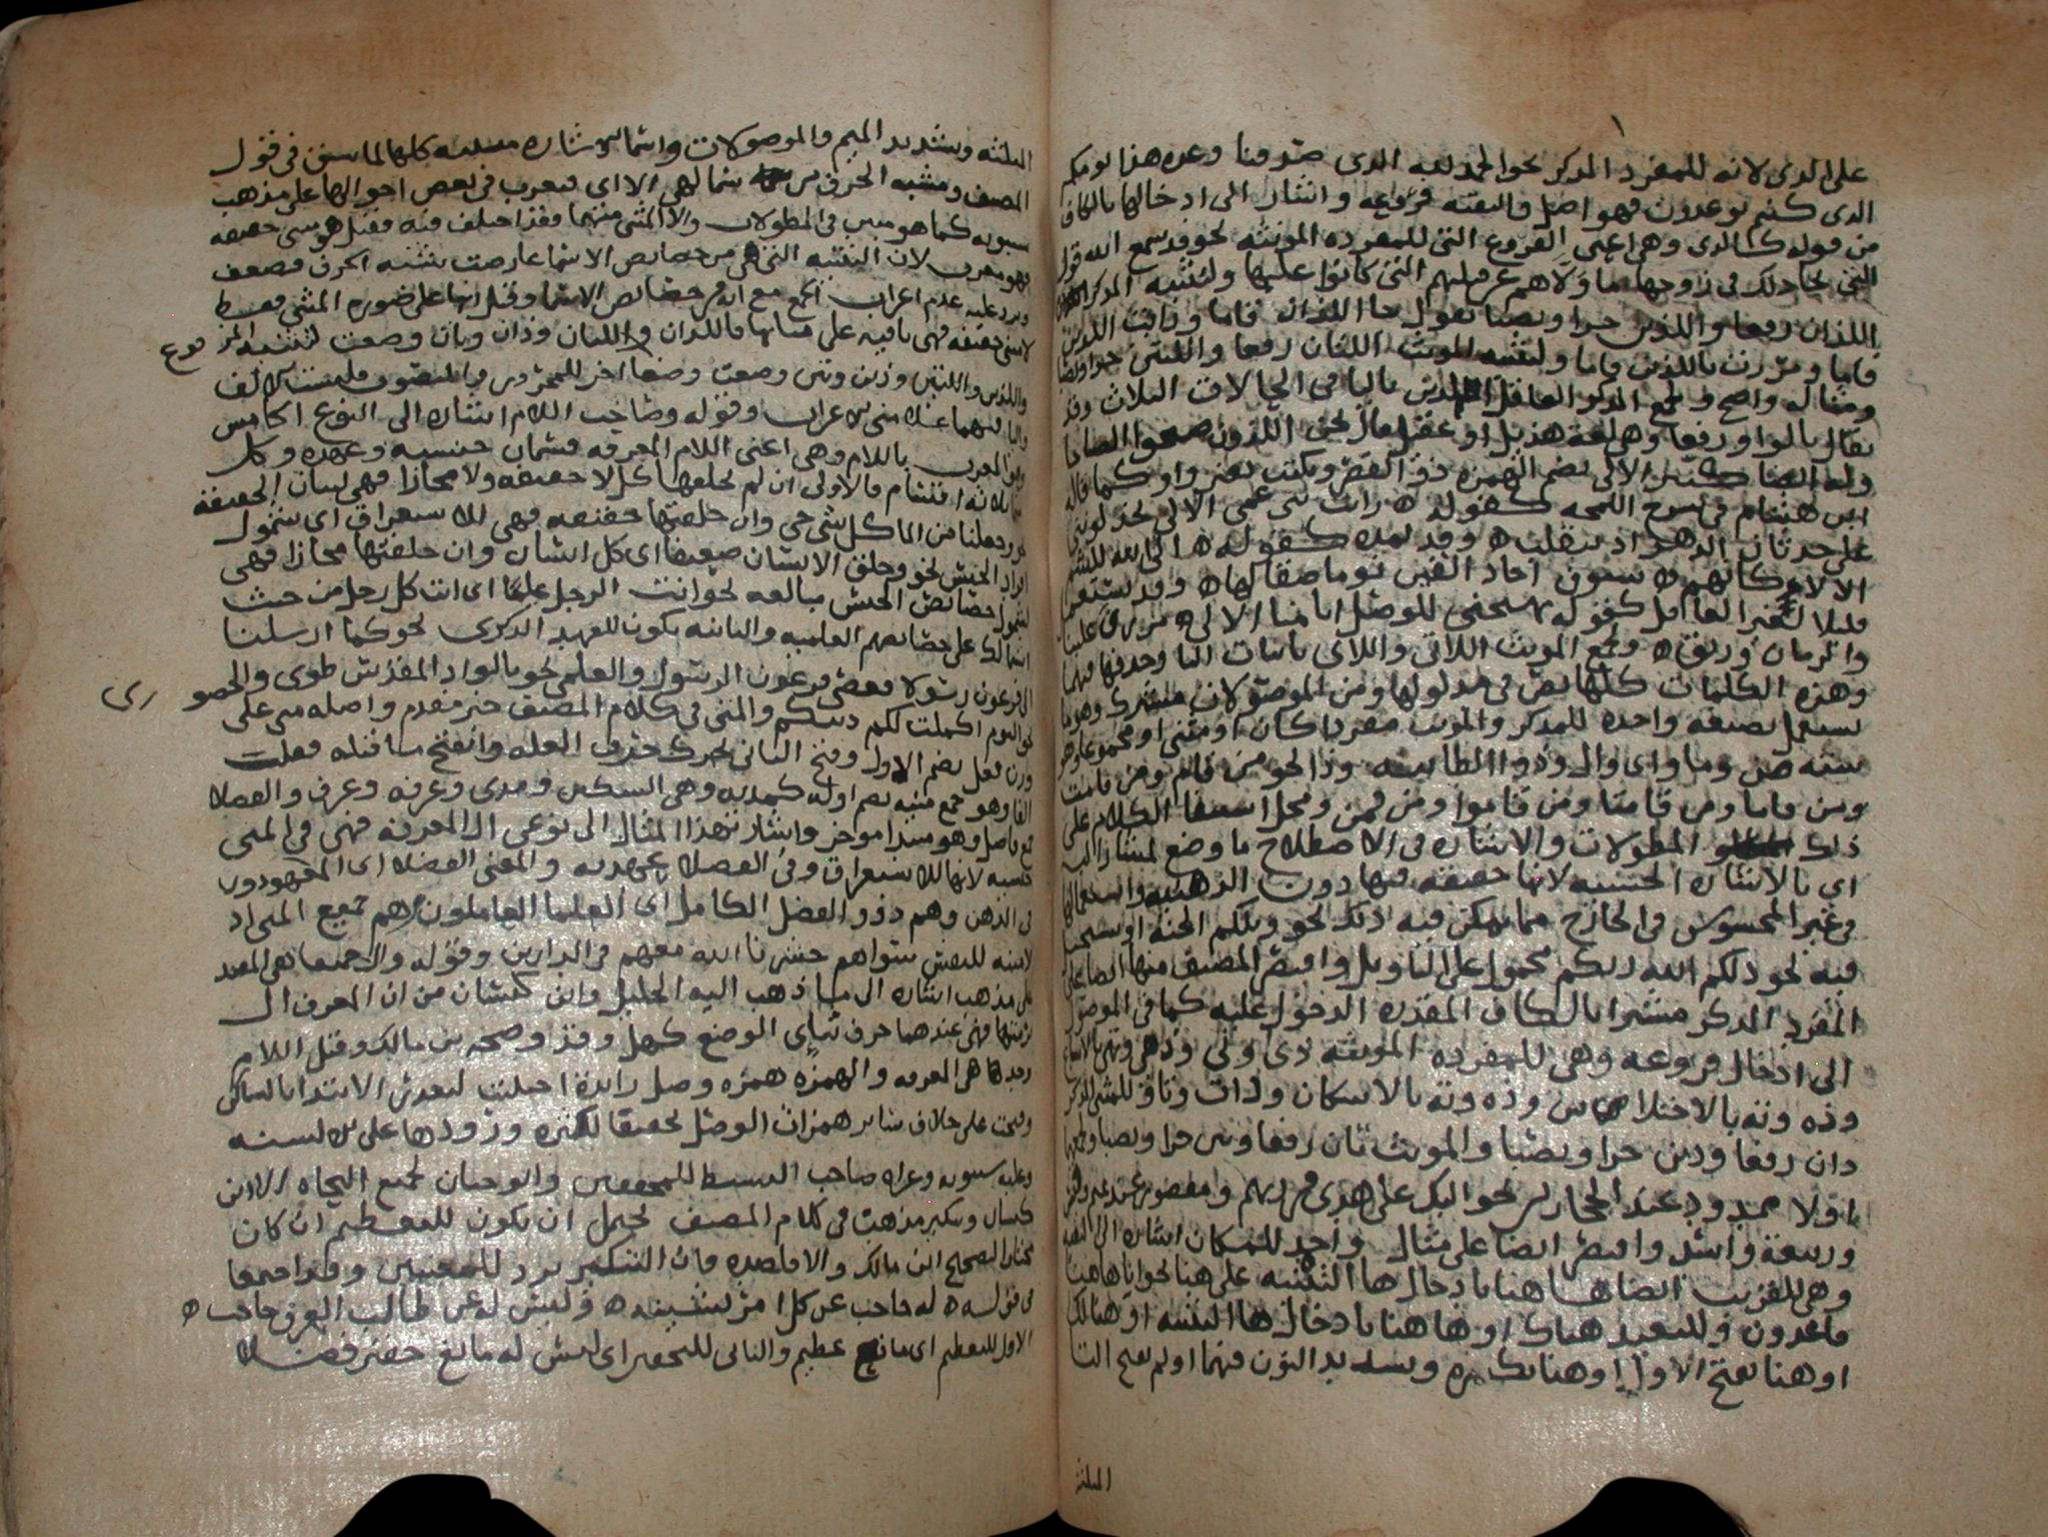 على الذى لانه للمفرد المذكر نحو الحمد لله الذى صدقنا وعده هذا يومكم
الذى كنتم توعدون فهو اصل والبقيه فروعه واشار الى ادخالها بالكاف
من قوله كالذى وهى اعنى الفروع التى للمفرده المونثه نحو قد سمع الله قول
التى تجادلك فى زوجها ما ولاهم عن قبلتهم التى كانوا عليها ولتثنيه المذكر
اللذان رفعا واللذين جرا ونصبا تقول جا اللذان قاما ورايت اللذين
قاما ومررت باللذين قاما ولتثنيه المونث اللتان رفعا واللتين جرا ونصبا
ومثاله واضح ولجمع المذكر العاقل الذين باليا فى الحالات الثلاث وقد
يقال بالواو رفعا وهى لغة هذيل او عقيل قال نحن اللذون صبحوا الصباحا
وله ايضا كثيرا الالى بضم الهمزه وقد تقصر ويكتب بغير واو كما قاله
ابن هشام فى شرح اللمحه كقوله ه رايت بنى عمى الالى يخذلوننى
على حدثان الدهر اذ يتقلب ه وقد يمد كقوله ه ابى الله للشم
الالاء كانهم ه سيوف اجاد القين يوما صقالها ه وقد يستعمل
قليلا لغير العاقل كقوله تهيجنى للوصل ايامنا الالى ه مررن علينا
والزمان وريق ه ولجمع المونث اللاتى واللاى باثبات اليا وحذفها فيهما
وهذه الكلمات كلها نص فى مدلولها ومن الموصولات مشترك وهو ما
يستعمل بصيغه واحده للمذكر والمونث مفردا كان او مثنى او مجموعا وهو
سته من وما واى وال وذو الطائيه وذا نحو من قام ومن قامت
ومن قاما ومن قامتا ومن قاموا ومن قمن ومحل استيفا الكلام على
ذلك المطولات والاشاره فى الاصطلاح ما وضع لمشار اليه
اى بالاشاره الحسيه لانها حقيقه فيها دون الذهنيه واستعمالها
فى غير المحسوس فى الخارج مما يمكن فيه ذلك نحو وتلكم الجنه او يستحيل
فيه نحو ذلكم الله ربكم محمول على التاويل واقتصر المصنف منها ايضا على
المفرد المذكر مشيرا بالكاف المقدره الدخول عليه كما فى الموصول
الى ادخال فروعه وهى للمفرده المونثه ذى وتى وذهى وتهى بالاشباع
وذه وته بالاختلاس وذه وته بالاسكان وذات وتا وللمثنى المذكر
ذان رفعا وذين جرا ونصبا والمونث تان رفعا وتين جرا ونصبا ولجمعها
اولا ممدود عند الحجازيين نحو اوليك على هدى من ربهم ومقصور عند تميم وقيس
وربيعة واسد واقتصر ايضا على مثال واحد للمكان اشاره الى البقيه
وهى للقريب ايضا ها هنا بادخال ها التنبيه على هنا نحو انا هاهنا
قاعدون وللبعيد هناك او ها هنا بادخال ها التنبيه او هنالك
او هنا بفتح الاول او هنا بكسره وتشديد النون فيهما او ثم بفتح الثا
المثلثه
المثلثه وتشديد الميم والموصولات واسما الاشاره مبنيه كلها لما سبق فى قول
المصنف ومشبه الحرف من الاسما لهى الا اى فتعرب فى بعض احوالها على مذهب
سيبويه كما هو مبين فى المطولات والا المثنى منهما فقد اختلف فيه فقيل هو مثنى حقيقه
فهو معرب لان التثنيه التى هى من خصائص الاسما عارضت تشبه الحرف فضعف
ويرد عليه عدم اعراب الجمع مع انه من خصائص الاسما وقيل انها على صورة المثنى فقط
لا مثنى حقيقه فهى باقيه على بنائها فاللذان واللتان وذان وتان وضعت لتثنيه المر فوع
واللذين واللتين وذين وتين وضعت وضعا اخر للمجرور والمنصوب فليست الالف
واليا فيهما عندهم من الاعراب وقوله وصاحب اللام اشاره الى النوع الخامس
وهو المعرف باللام وهى اعنى اللام المعرفه قسمان جنسيه وعهديه وكل
ثلاثه اقسام فالاولى ان لم تخلفها كل لا حقيقه ولا مجازا فهى لبيان الحقيقه
نحو وجعلنا من الما كل شى حى وان خلفتها حقيقه فهى للاستغراق اى شمول
افراد الجنس نحو وخلق الانسان ضعيفا اى كل انسان وان خلفتها مجازا فهى
لشمول خصائص الجنس مبالغه نحو انت الرجل علما اى انت كل رجل من حيث
اشتمالك على خصائصهم العلميه والثانيه يكون للعهد الذكرى نحو كما ارسلنا
الى فرعون رسولا فعصى فرعون الرسول والعلمى نحو بالواد المقدس طوى والحضو رى
نحو اليوم اكملت لكم دينكم والمنى فى كلام المصنف خبر مقدم واصله منى على
وزن فعل بضم الاول وفتح الثانى تحرك حرف العله وانفتح ما قبله فقلبت
الفا وهو جمع منيه بضم اوله كمديه وهى السكين ومدى وغرفه وغرف والفضلا
جمع فاضل وهو مبتدا موخر واشار بهذا المثال الى نوعى ال المعرفه فهى فى المنى
جنسيه لانها للاستغراق وفى الفضلا عهديه والمعنى الفضلا اى المعهودون
فى الذهن وهم ذوو الفضل الكامل اى العلما العاملون هم جميع المراد
لا منيه للنفس سواهم حشرنا الله معهم فى الدارين وقوله وال جميعها هى المفيد
على مذهب اشاره الى ما ذهب اليه الخليل وابن كيسان من ان المعرف ال
برمتها فهى عندهما حرف ثنائى الوضع كهل وقد وصححه ابن مالك وقيل اللام
وحدها هى المعرفه والهمزه همزه وصل زائدة اجتلبت لتعذر الابتدا بالساكن
وفتحت على خلاف سائر همزات الوصل تخفيفا لكثره ورودها على الالسنه
وعليه سيبويه وعزاه صاحب البسيط للمحققين وابو حيان لجميع النحاه الا ابن
كيسان وتنكير مذهب فى كلام المصنف يحتمل ان يكون للتعظيم ان كان
مختارا لتصحيح ابن مالك والا فلضده فان التنكير يرد للمعنيين وقد اجتمعا
فى قوله ه له حاجب عن كل امر يشينه ه وليس له عن طالب العرف حاجب ه
الاول للتعظيم اى مانع عظيم والثانى للتحقير اى ليس له مانع حقير فضلا